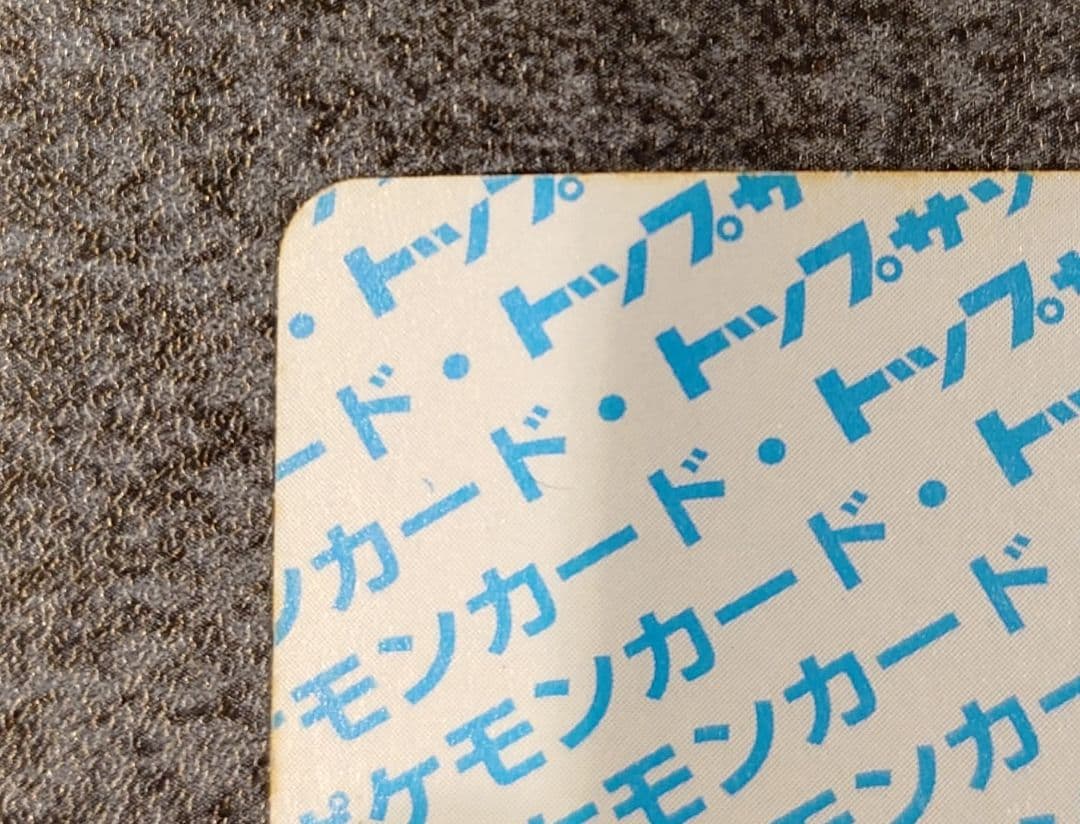 ・トップ
ード・トップサ
ンカード・トップサン
モンカード・トップサ
ポケモンカード・トッ
ケモンカード
モンカー